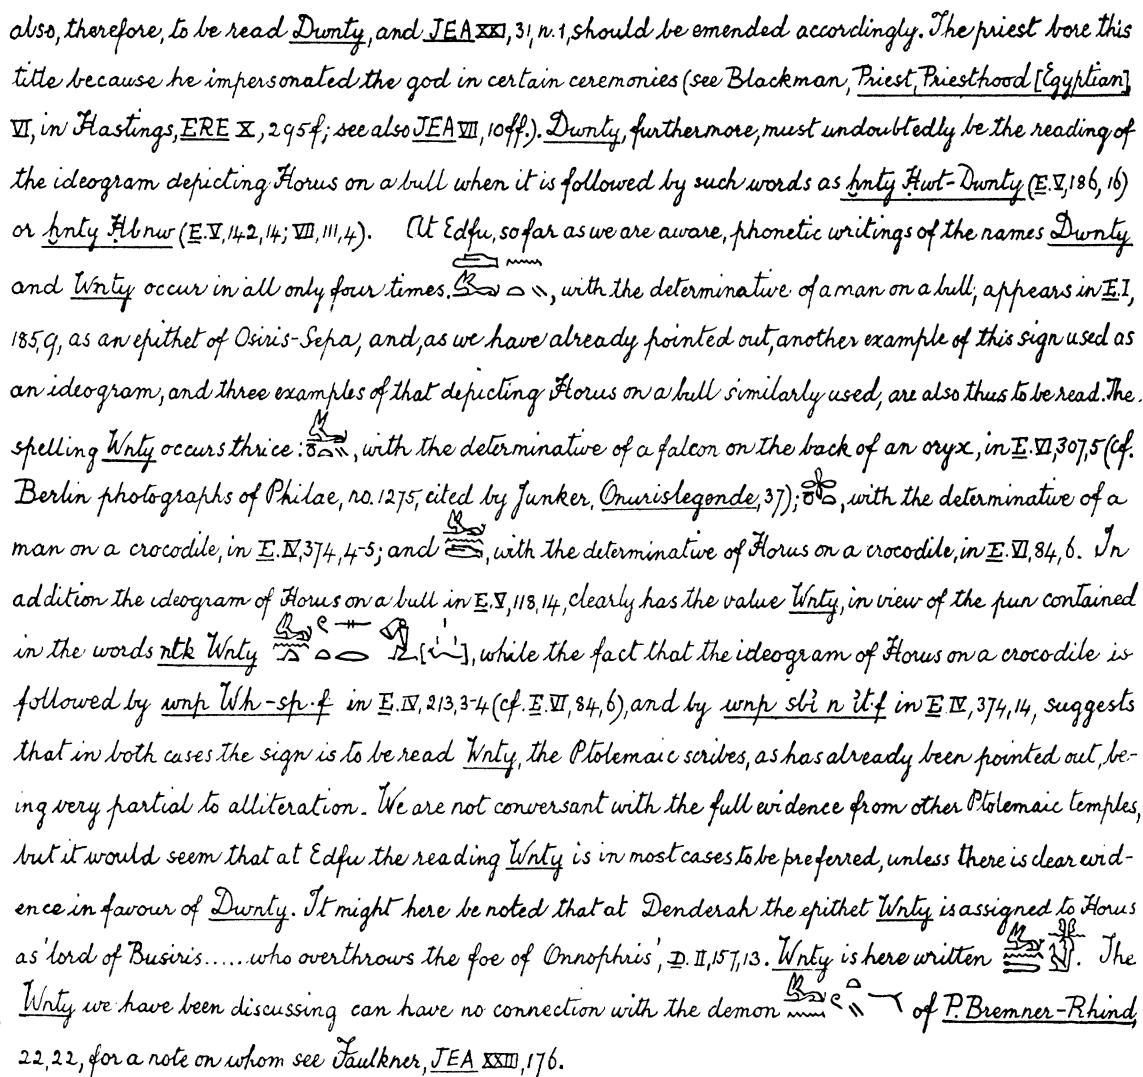 also, therefore, to be read Dwnty, and JEA XXI, 31, n. 1, should be emended accordingly. The priest bore this
title because he impersonated the god in certain ceremonies (see Blackman, Priest, Priesthood [Egyptian]
VI, in Hastings, ERE X, 295f; see also JEA VII, 10ff.). Dwnty, furthermore, must undoubtedly be the reading of
the ideogram depicting Horus on a bull when it is followed by such words as ḫnty Ḥwt-Dwnty (E. V, 186, 16)
or ḫnty Ḥbnw (E. V, 142, 14; VII, 111, 4). At Edfu, so far as we are aware, phonetic writings of the names Dwnty
and Wnty occur in all only four times. , with the determinative of a man on a bull, appears in E. I,
185, 9, as an epithet of Osiris-Sepa, and, as we have already pointed out, another example of this sign used as
an ideogram, and three examples of that depicting Horus on a bull similarly used, are also thus to be read. The
spelling Wnty occurs thrice: , with the determinative of a falcon on the back of an oryx, in E. VI, 307, 5 (cf.
Berlin photographs of Philae, no. 1275, cited by Junker, Onurislegende, 37); , with the determinative of a
man on a crocodile, in E. IV, 374, 4-5; and , with the determinative of Horus on a crocodile, in E. VI, 84, 6. In
addition the ideogram of Horus on a bull in E. V, 118, 14, clearly has the value Wnty, in view of the pun contained
in the words ntk Wnty , while the fact that the ideogram of Horus on a crocodile is
followed by wnp Wh-sp.f in E. IV, 213, 3-4 (cf. E. VI, 84, 6), and by wnp sbỉ n ỉt.f in E. IV, 374, 14, suggests
that in both cases the sign is to be read Wnty, the Ptolemaic scribes, as has already been pointed out, be-
ing very partial to alliteration. We are not conversant with the full evidence from other Ptolemaic temples,
but it would seem that at Edfu the reading Wnty is in most cases to be preferred, unless there is clear evid-
ence in favour of Dwnty. It might here be noted that at Denderah the epithet Wnty is assigned to Horus
as 'lord of Busiris.....who overthrows the foe of Onnophris', D. II, 157, 13. Wnty is here written . The
Wnty we have been discussing can have no connection with the demon of P. Bremner-Rhind,
22, 22, for a note on whom see Faulkner, JEA XXIII, 176.